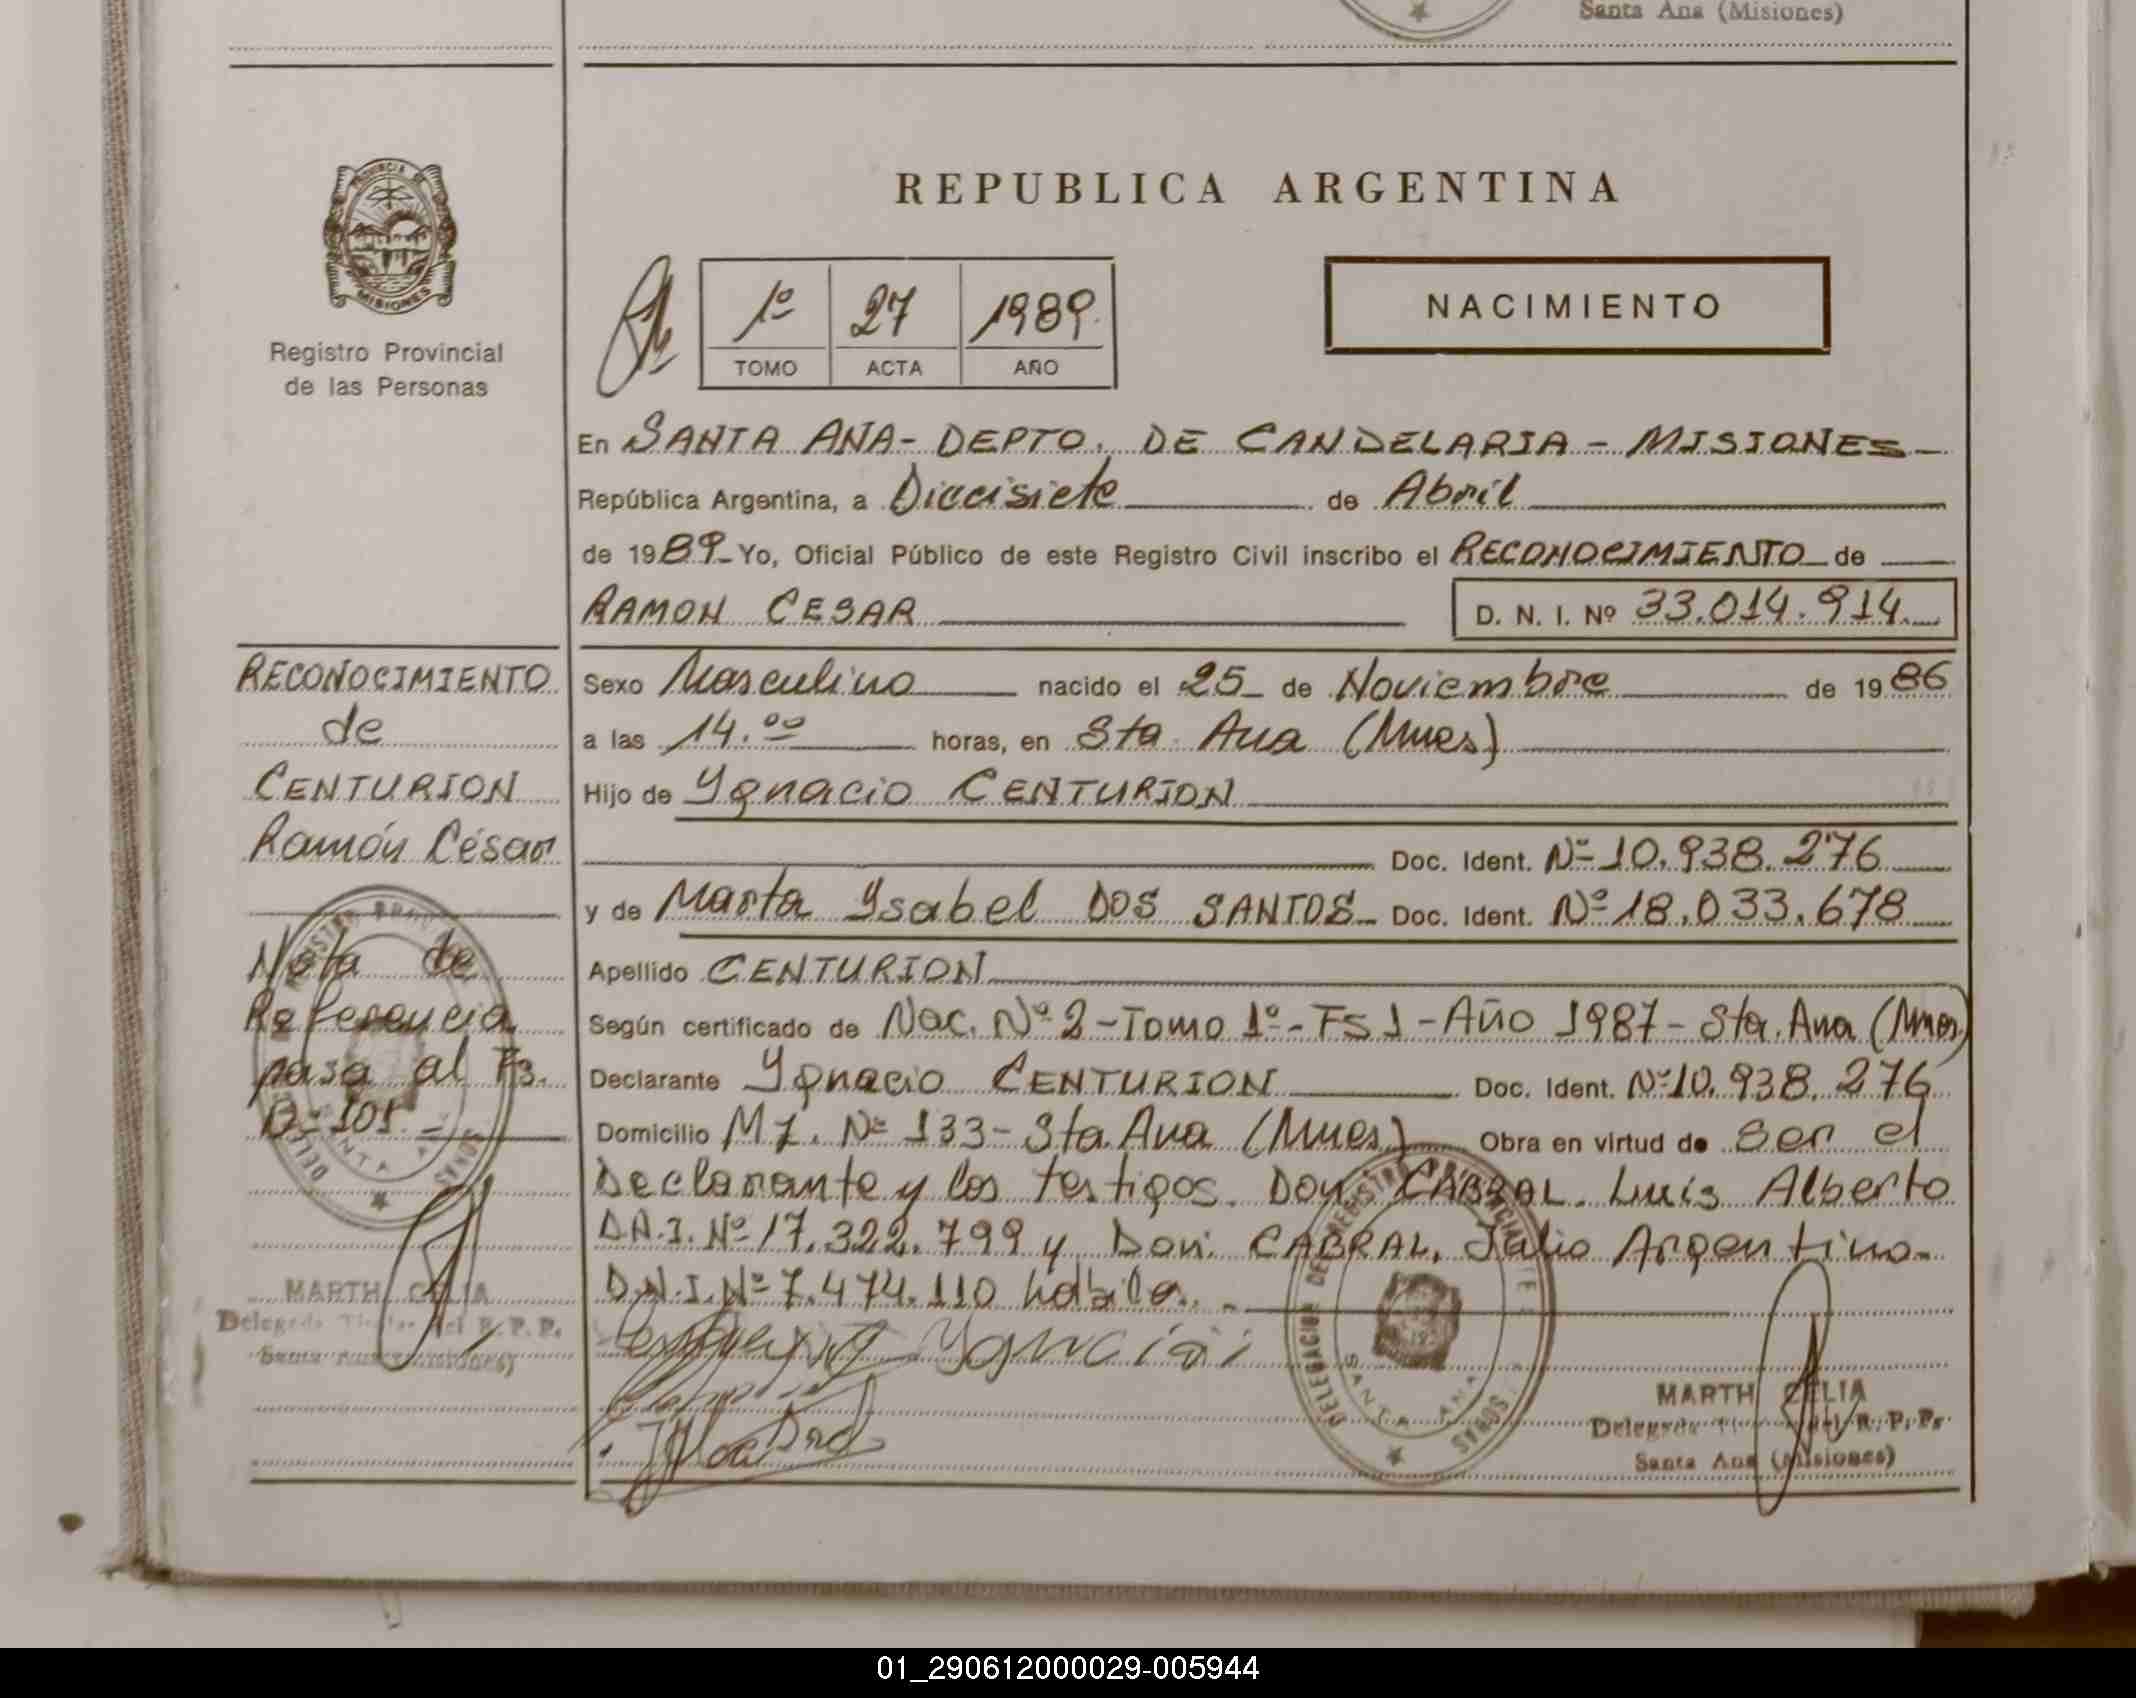 Santa Ana (Misiones)
PROVINCIA DE
MISIONES
Registro Provincial
de las Personas
REPUBLICA ARGENTINA
1º 27 1989
TOMO ACTA AÑO
NACIMIENTO
En SANTA ANA- DEPTO. DE CANDELARIA - MISIONES
República Argentina, a Diecisiete de Abril
de 1989 Yo, Oficial Público de este Registro Civil inscribo el RECONOCIMIENTO de
RAMON CESAR D. N. I. Nº 33.014.914.
Sexo Masculino nacido el 25 de Noviembre de 1986
a las 14.ºº horas, en Sta Ana (Mnes)
Hijo de Ygnacio CENTURION
Doc. Ident. Nº 10.938.276
y de Marta Ysabel DOS SANTOS Doc. Ident. Nº 18.033.678
Apellido CENTURION
Según certificado de Nac. Nº 2 - Tomo 1º - Fs 1 - Año 1987 - Sta. Ana (Mnes)
Declarante Ygnacio CENTURION Doc. Ident. Nº 10.938.276
Domicilio MZ. Nº 133 - Sta Ana (Mnes) Obra en virtud de Ser el
Declarante y los testigos. Don CABRAL. Luis Alberto
D.N.I. Nº 17.322.799 y Don: CABRAL, Julio Argentino
D.N.I. Nº 7.474.110 hábiles.
RECONOCIMIENTO
de
CENTURION
Ramón César
Nota de
Referencia
pasa al Fs.
Nº 101
MARTH CELIA
Delegado Titular del R. P. P.
Santa Ana (Misiones)
Ygnacio
DELEGACION DEL REGISTRO PROVINCIAL DE
SANTA ANA
MARTH CELIA
Delegado Titular del R. P. Ps
Santa Ana (Misiones)
01_290612000029-005944